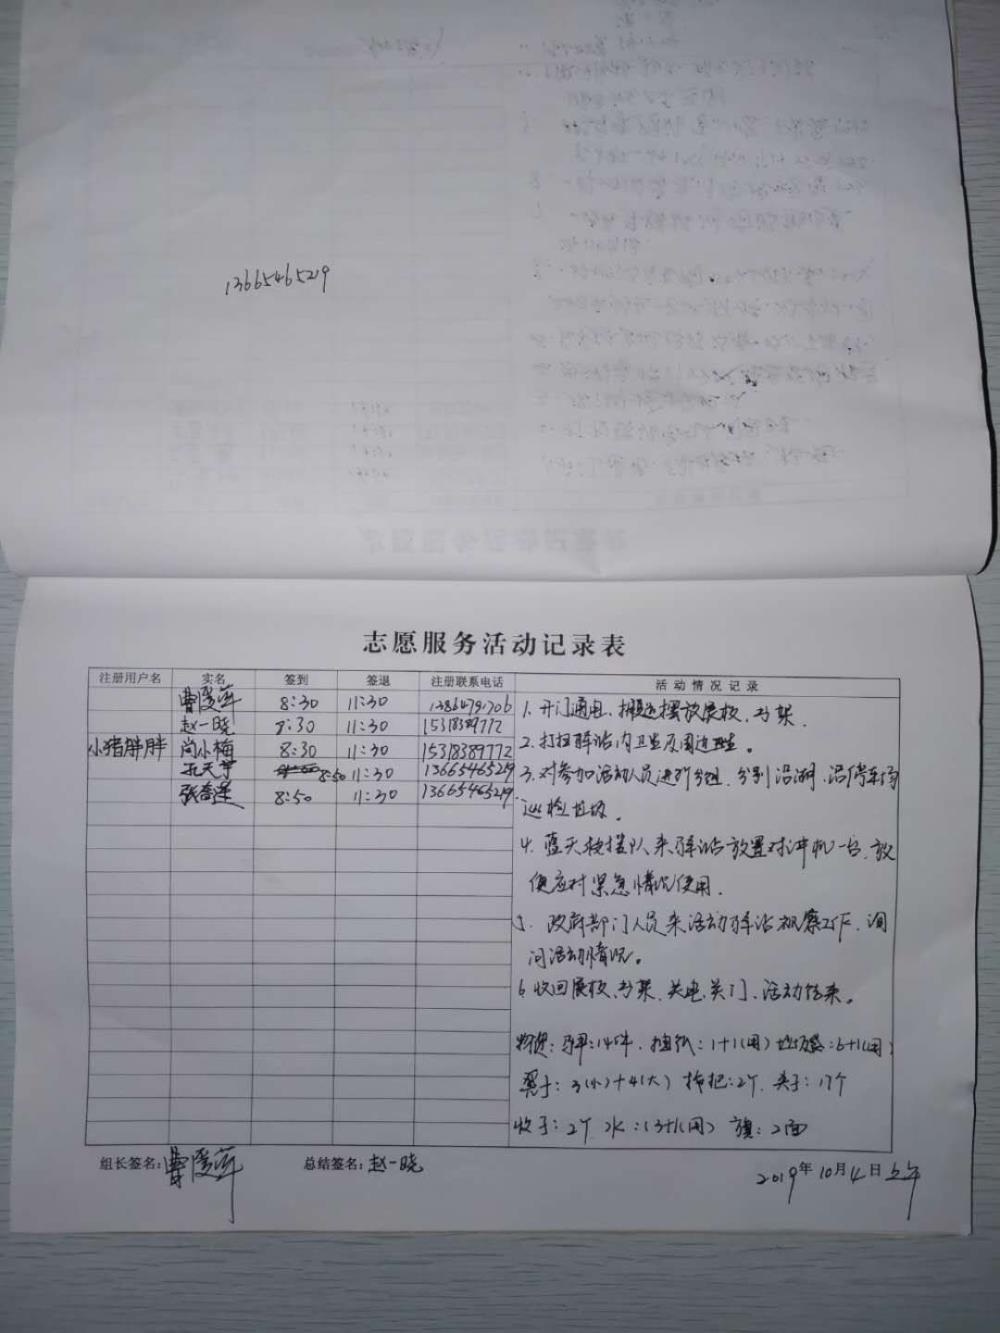 13665465219
志愿服务活动记录表
注册用户名 实名 签到 签退 注册联系电话 活动情况记录
曹爱萍 8:30 11:30 13864791706
赵一晓 8:30 11:30 15318389772
小猪胖胖 尚小梅 8:30 11:30 15318389772
孔天宇 8:50 11:30 13665465219
8:50 11:30 13665465219
1. 开门通电、搬运摆放展板、书架.
2. 打扫驿站内卫生及周边卫生。
3. 对参加活动人员进行分组、分别沿湖、沿停车场
巡检垃圾。
4. 蓝天救援队来驿站放置对冲机一台,
便应对紧急情况使用.
5. 政府部门人员来活动驿站视察工作、询
问活动情况。
6. 收回展板、书架、关电、关门、活动结束。
物资:马甲:14件. 抽纸:1+1(用) 垃圾袋:6+1(用)
3(小)+4(大) 拖把:2个. 夹子:17个
2个 水:13+1(用) 旗:2面
组长签名:曹爱萍 总结签名:赵一晓
2019年10月4日上午